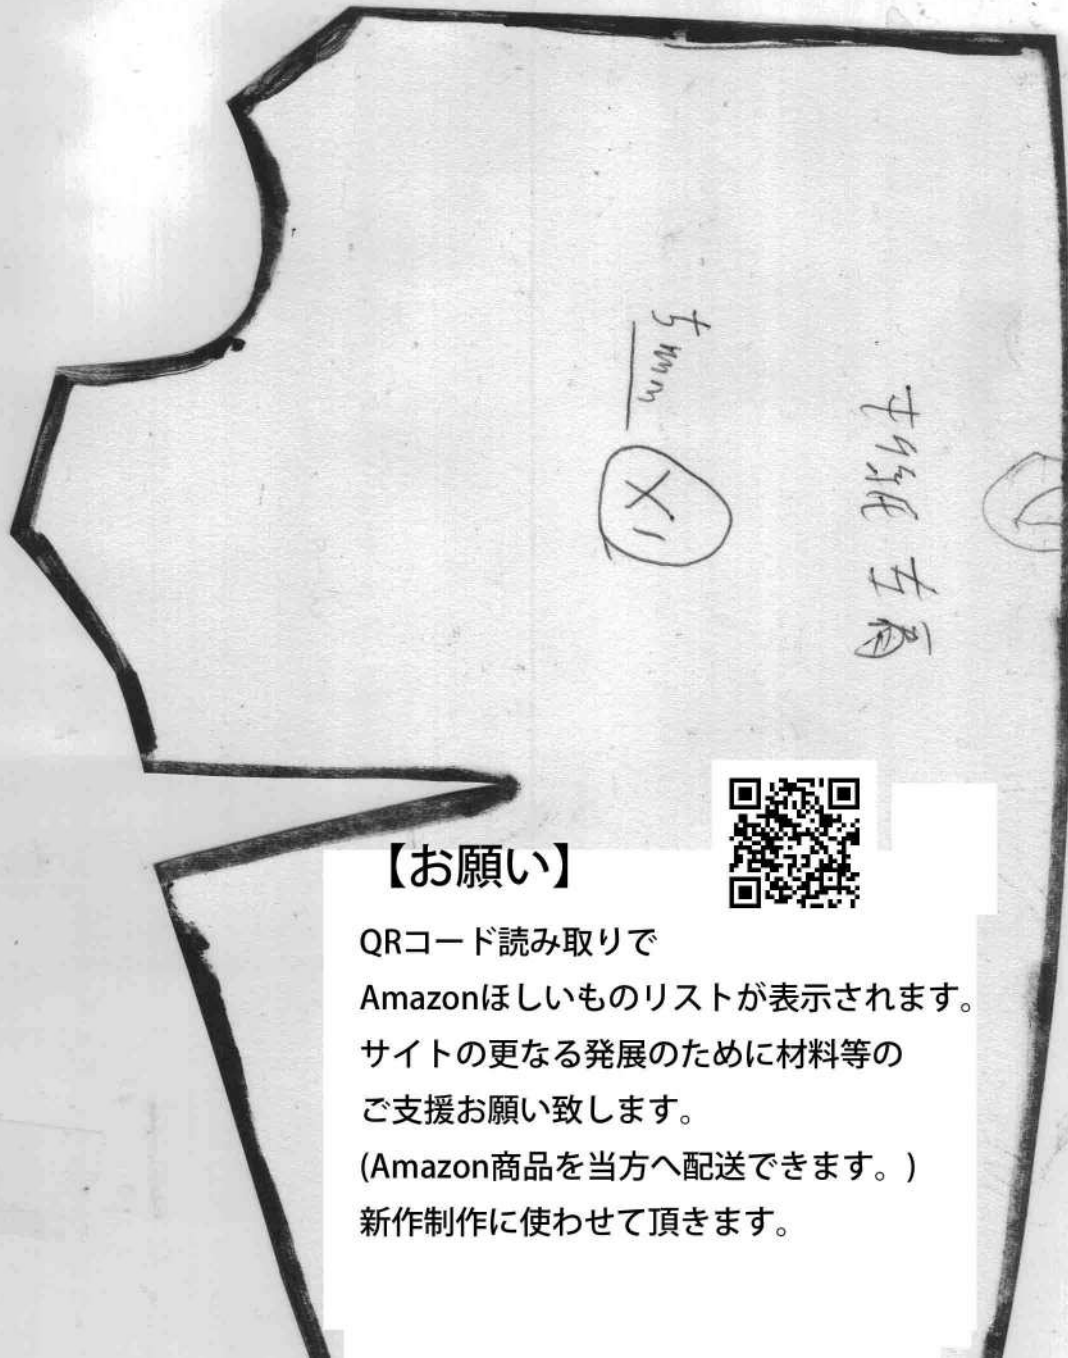 5mm
X1
【お願い】
QRコード読み取りで
Amazonほしいものリストが表示されます。
サイトの更なる発展のために材料等の
ご支援お願い致します。
(Amazon商品を当方へ配送できます。)
新作制作に使わせて頂きます。